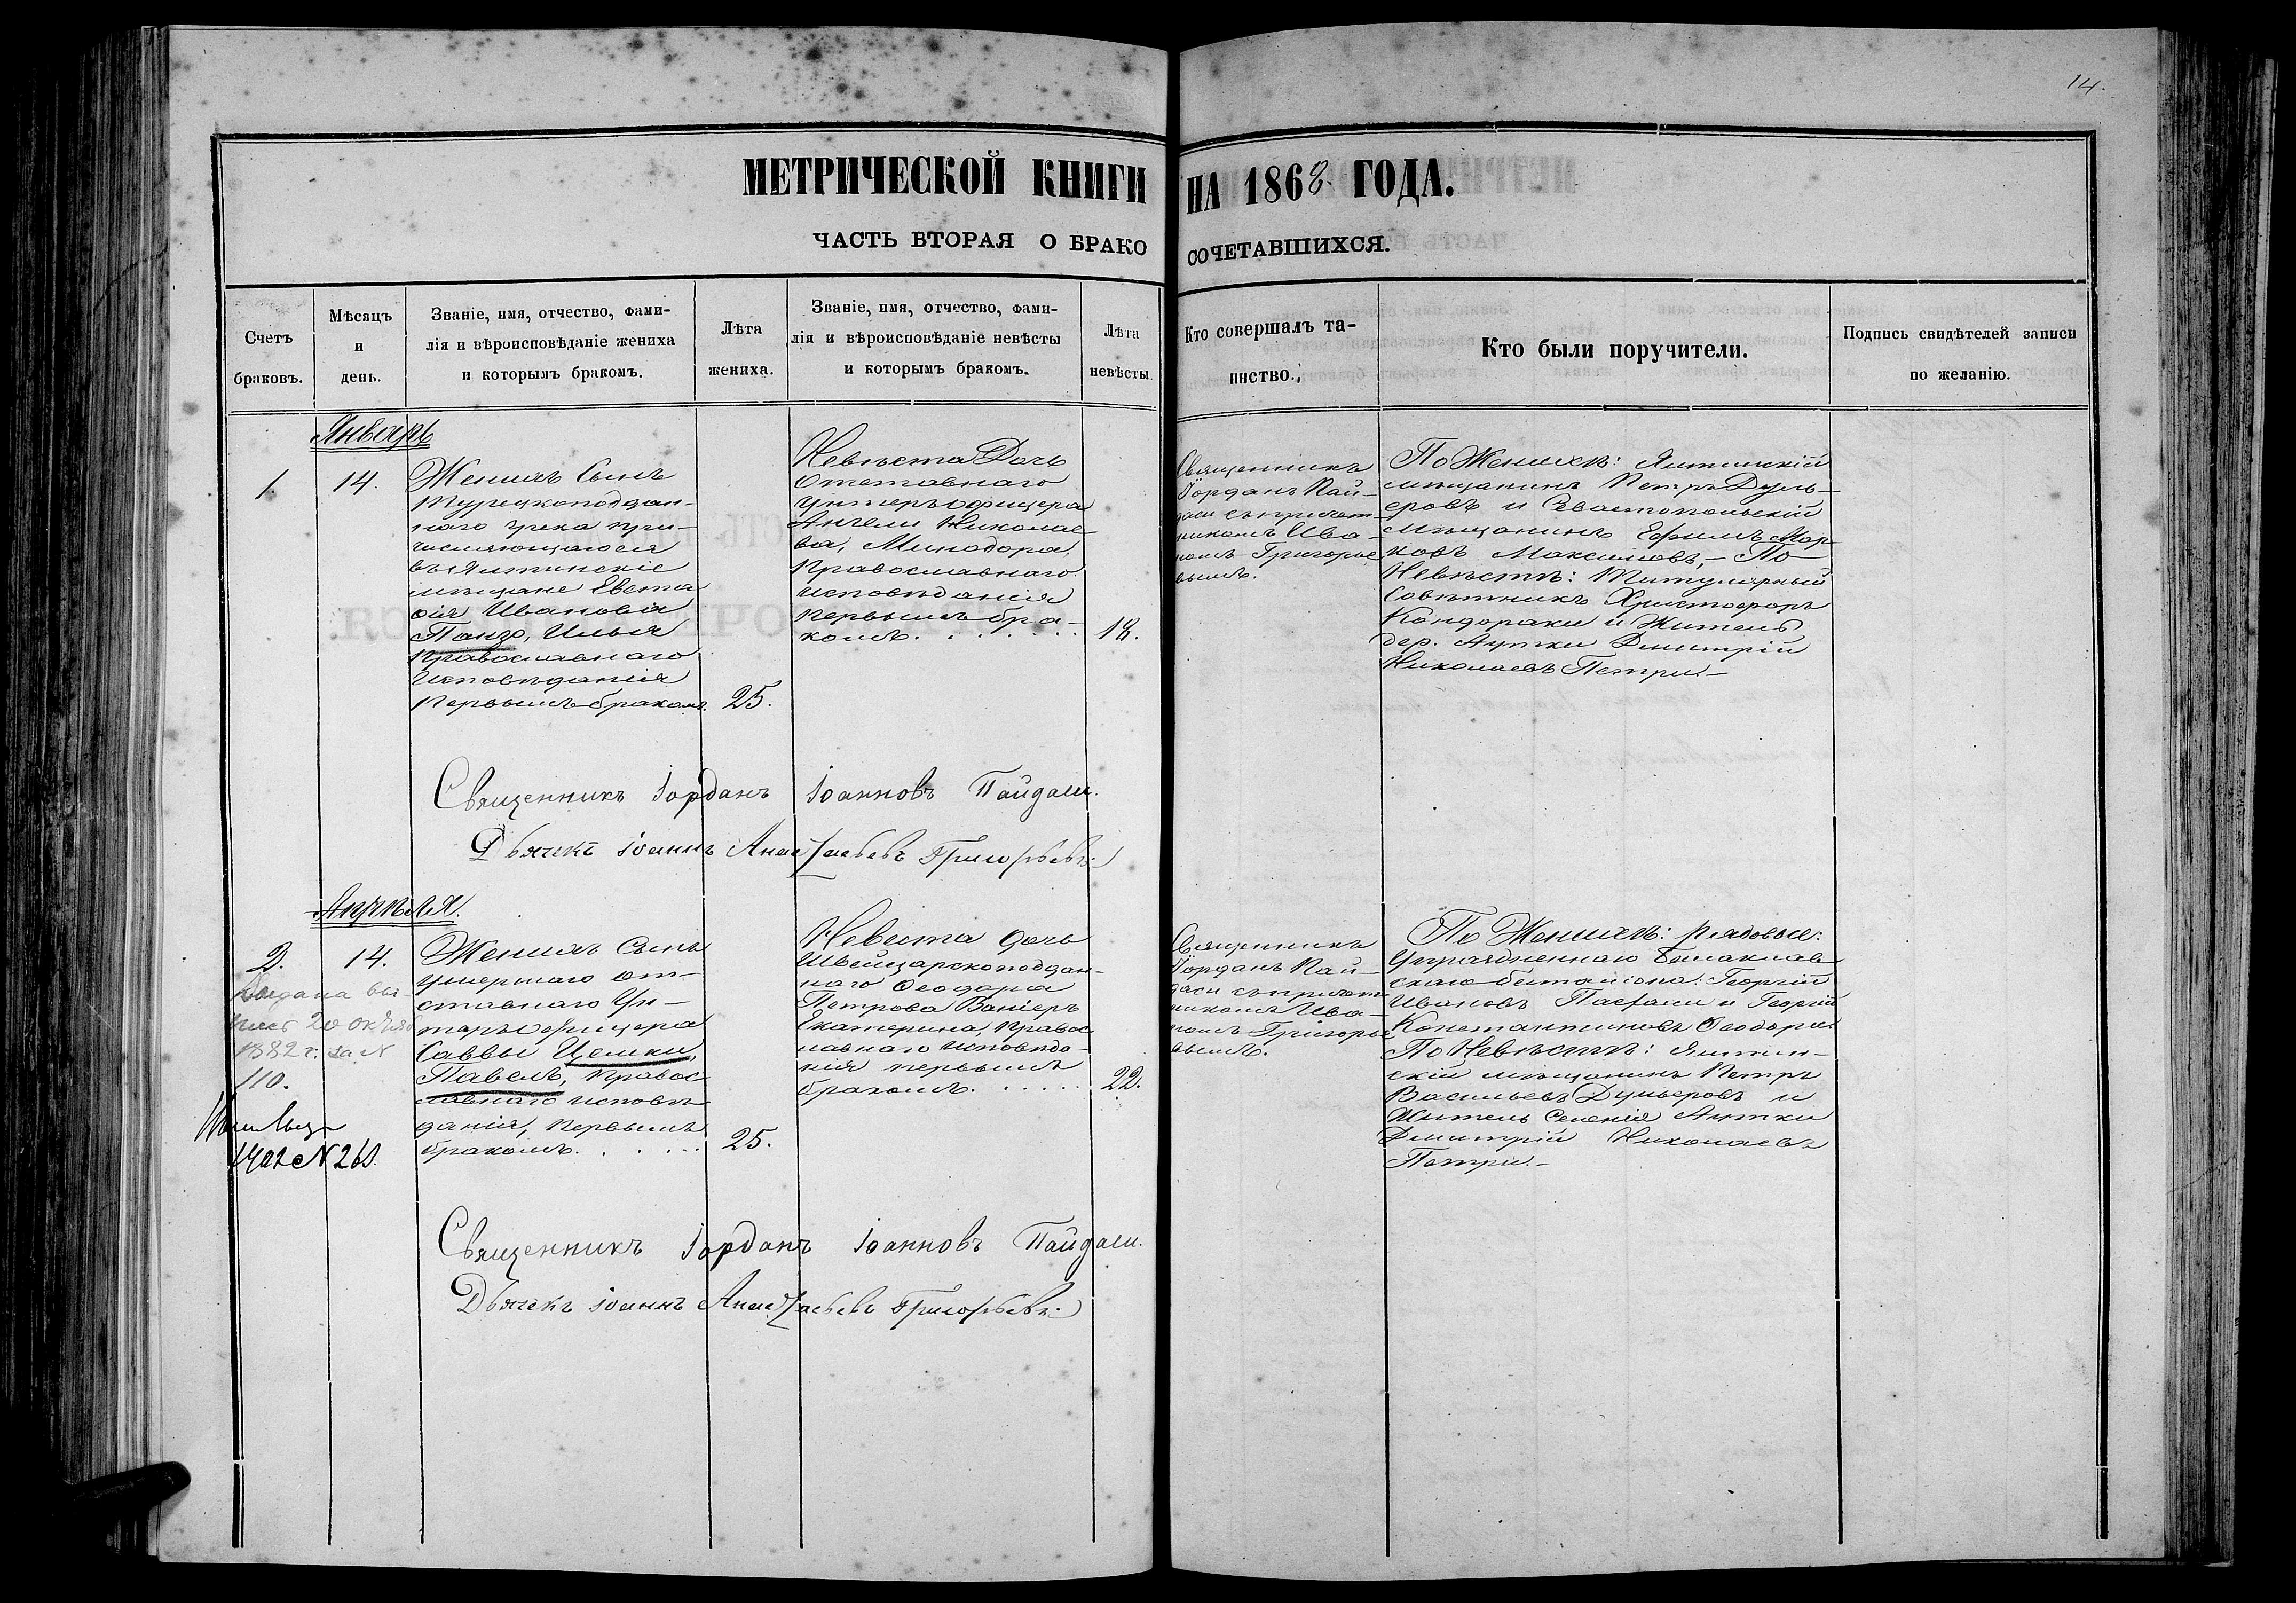 14.
МЕТРИЧЕСКОЙ КНИГИ НА 1868 ГОДА.
ЧАСТЬ ВТОРАЯ О БРАКО СОЧЕТАВШИХСЯ.
Счетъ браковъ.
Мѣсяцъ и день.
Званіе, имя, отчество, фами-
лія и вѣроисповѣданіе жениха
и которымъ бракомъ.
Лѣта жениха.
Званіе, имя, отчество, фами-
лія и вѣроисповѣданіе невѣсты
и которымъ бракомъ.
Лѣта невѣсты.
Кто совершалъ та-
инство.
Кто были поручители.
Подпись свидѣтелей записи
по желанію.
Январь
1.
14.
Женихъ Сынъ
Турецкоподдан-
наго грека при-
числяющагося
въ Ялтинскіе
мѣщане Евста
фія Иванова
Панго, Илья
Православнаго
Исповѣданія
первымъ бракомъ.
25.
Невѣста Дочь
Отставнаго
Унтеръ офицера
Ангели Николае-
ва, Минодора,
Православнаго
исповѣданія
первымъ бра-
комъ.
18.
Священникъ
Іорданъ Пай-
даси съ причет-
никомъ Ива-
номъ Григорье
вымъ.
По Женихѣ: Ялтинскій
мѣщанинъ Петръ Дуль-
еровъ и Севастопольскій
мѣщанинъ Ефимъ Мар-
ковъ Максимовъ, – По
Невѣстѣ: Титулярный
Совѣтникъ Христофоръ
Кондораки и Житель
дер. Аутки Дмитрій
Николаевъ Петри. –
Священникъ Іорданъ Іоанновъ Пайдаси.
Дьячекъ Іоаннъ Анастасьевъ Григорьевъ.
Апрѣля.
2.
14.
Выдана вы-
пись 20 октяб
1882 г. за N
110.
1902 N 261.
Женихъ Сынъ
умершаго от-
ставнаго Ун-
теръ офицера
Саввы Цемки,
Павелъ, Правос
лавнаго исповѣ-
данія, первымъ
бракомъ.
25.
Невеста дочь
Швейцарскоподдан-
наго Ѳеодора
Петрова Ваніеръ
Екатерина, Правос
лавнаго исповѣда-
нія первымъ
бракомъ.
22.
Священникъ
Іорданъ Пай-
даси съ причет-
никомъ Ива-
номъ Григорье
вымъ.
По Женихѣ: рядовые:
Упраздненнаго Балаклав
скаго баталіона: Георгій
Ивановъ Пасхали и Георгій
Константиновъ Ѳеодори.
По Невѣстѣ: Ялтин-
скій мѣщанинъ Петръ
Васильевъ Дульеровъ и
Житель Селенія Аутки
Дмитрій Николаевъ
Петри. –
Священникъ Іорданъ Іоанновъ Пайдаси.
Дьячекъ Іоаннъ Анастасьевъ Григорьевъ.